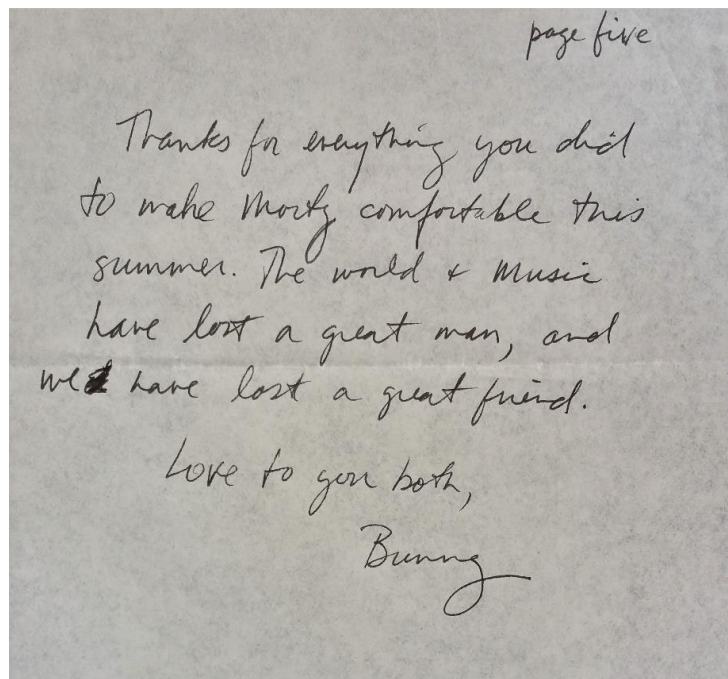 page five
Thanks for everything you did
to make Morty comfortable this
summer. The world & Music
have lost a great man, and
we have lost a great friend.
Love to you both,
Bunny